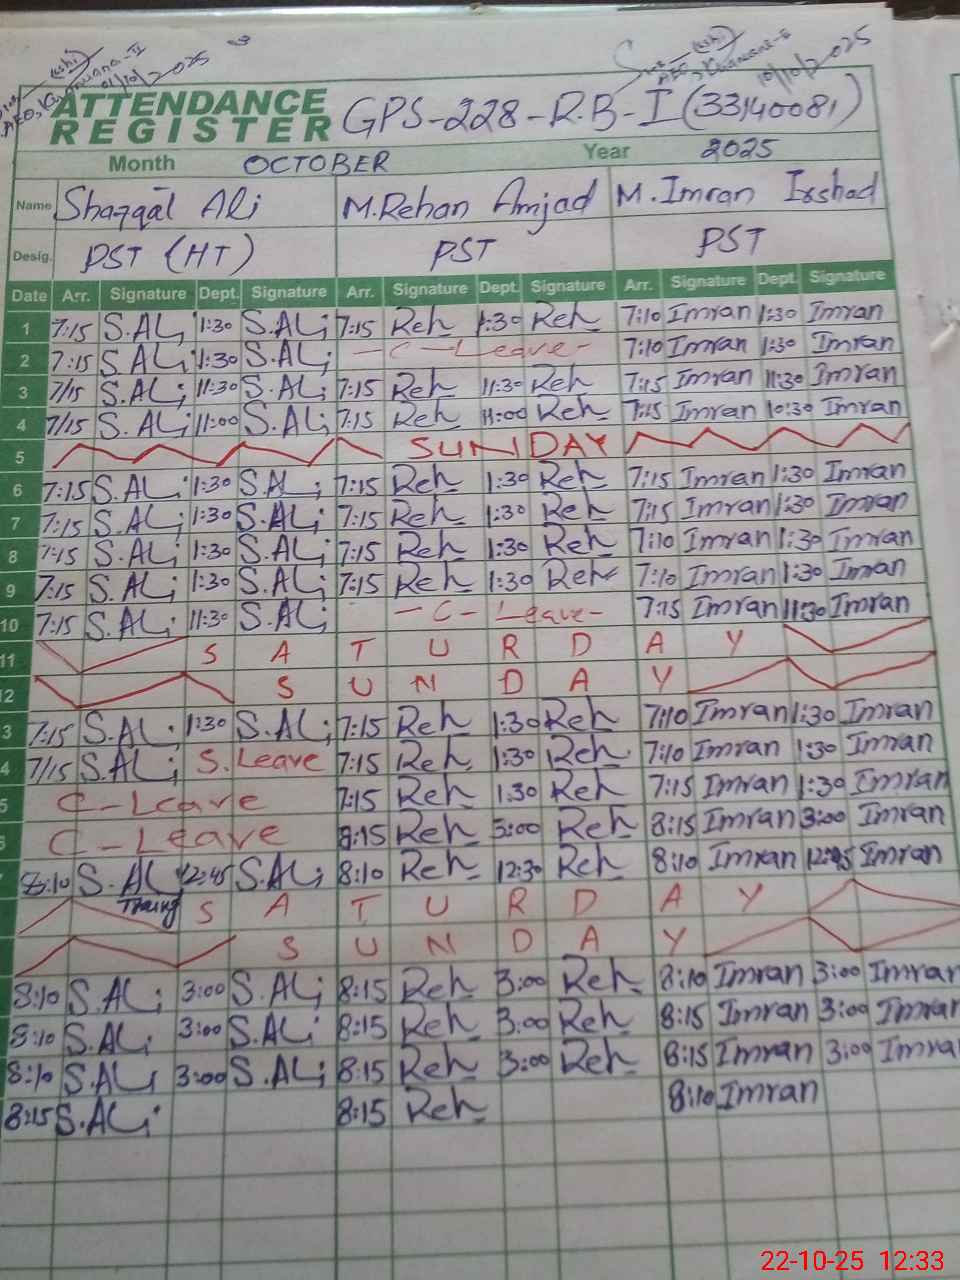 (Eshi)
AEO, Khanuana-II
01/10/2025
(Eshi)
AEO, Khanuana-II
10/10/2025
ATTENDANCE
REGISTER
GPS-228-R.B-I (33140081)
Month OCTOBER Year 2025
Name Shafqat Ali M.Rehan Amjad M. Imran Irshad
Desig. PST (HT) PST PST
Date Arr. Signature Dept. Signature Arr. Signature Dept. Signature Arr. Signature Dept. Signature
1 7:15 S.ALi 1:30 S.ALi 7:15 Reh 1:30 Reh 7:10 Imran 1:30 Imran
2 7:15 S.ALi 1:30 S.ALi - C - Leave - 7:10 Imran 1:30 Imran
3 7:15 S.ALi 11:30 S.ALi 7:15 Reh 11:30 Reh 7:15 Imran 11:30 Imran
4 7:15 S.ALi 11:00 S.ALi 7:15 Reh 11:00 Reh 7:15 Imran 10:30 Imran
5 SUNDAY
6 7:15 S.ALi 1:30 S.ALi 7:15 Reh 1:30 Reh 7:15 Imran 1:30 Imran
7 7:15 S.ALi 1:30 S.ALi 7:15 Reh 1:30 Reh 7:15 Imran 1:30 Imran
8 7:15 S.ALi 1:30 S.ALi 7:15 Reh 1:30 Reh 7:10 Imran 1:30 Imran
9 7:15 S.ALi 1:30 S.ALi 7:15 Reh 1:30 Reh 7:10 Imran 1:30 Imran
10 7:15 S.ALi 11:30 S.ALi - C - Leave - 7:15 Imran 11:30 Imran
11 S A T U R D A Y
12 S U N D A Y
3 7:15 S.ALi 1:30 S.ALi 7:15 Reh 1:30 Reh 7:10 Imran 1:30 Imran
4 7:15 S.ALi S.Leave 7:15 Reh 1:30 Reh 7:10 Imran 1:30 Imran
5 C-Leave 7:15 Reh 1:30 Reh 7:15 Imran 1:30 Imran
C-Leave 8:15 Reh 3:00 Reh 8:15 Imran 3:00 Imran
8:10 S.ALi 12:45 S.ALi 8:10 Reh 12:30 Reh 8:10 Imran 12:45 Imran
S A T U R D A Y
S U N D A Y
8:10 S.ALi 3:00 S.ALi 8:15 Reh 3:00 Reh 8:10 Imran 3:00 Imran
8:10 S.ALi 3:00 S.ALi 8:15 Reh 3:00 Reh 8:15 Imran 3:00 Imran
8:10 S.ALi 3:00 S.ALi 8:15 Reh 3:00 Reh 8:15 Imran 3:00 Imra
8:15 S.ALi 8:15 Reh 8:10 Imran
22-10-25 12:33